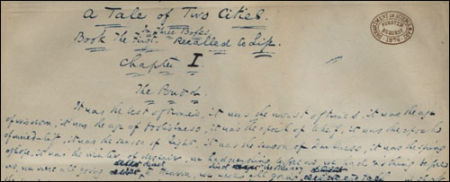 A Tale of Two Cities.
In Three Books.
Book the First. Recalled to Life.
Chapter I
The Period.
It was the best of times, it was the worst of times, it was the age
of wisdom, it was the age of foolishness, it was the epoch of belief, it was the epoch
of incredulity, it was the season of Light, it was the season of Darkness, it was the spring
of hope, it was the winter of despair, we had everything before us, we had nothing before
us, we were all going to Heaven, we were all going